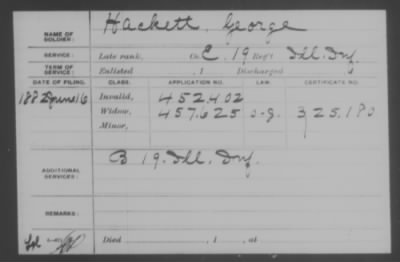 NAME OF SOLDIER: Hackett, George
SERVICE: Late rank, Co. C, 19 Reg't Ill. Inf.
TERM OF SERVICE: Enlisted , 1 Discharged
DATE OF FILING. CLASS. APPLICATION NO. LAW. CERTIFICATE NO.
1882 June 16 Invalid, 452.402
Widow, 457.625 325.180
Minor,
ADDITIONAL SERVICES: B 19. Ill. Inf.
REMARKS:
Died , 1 , at